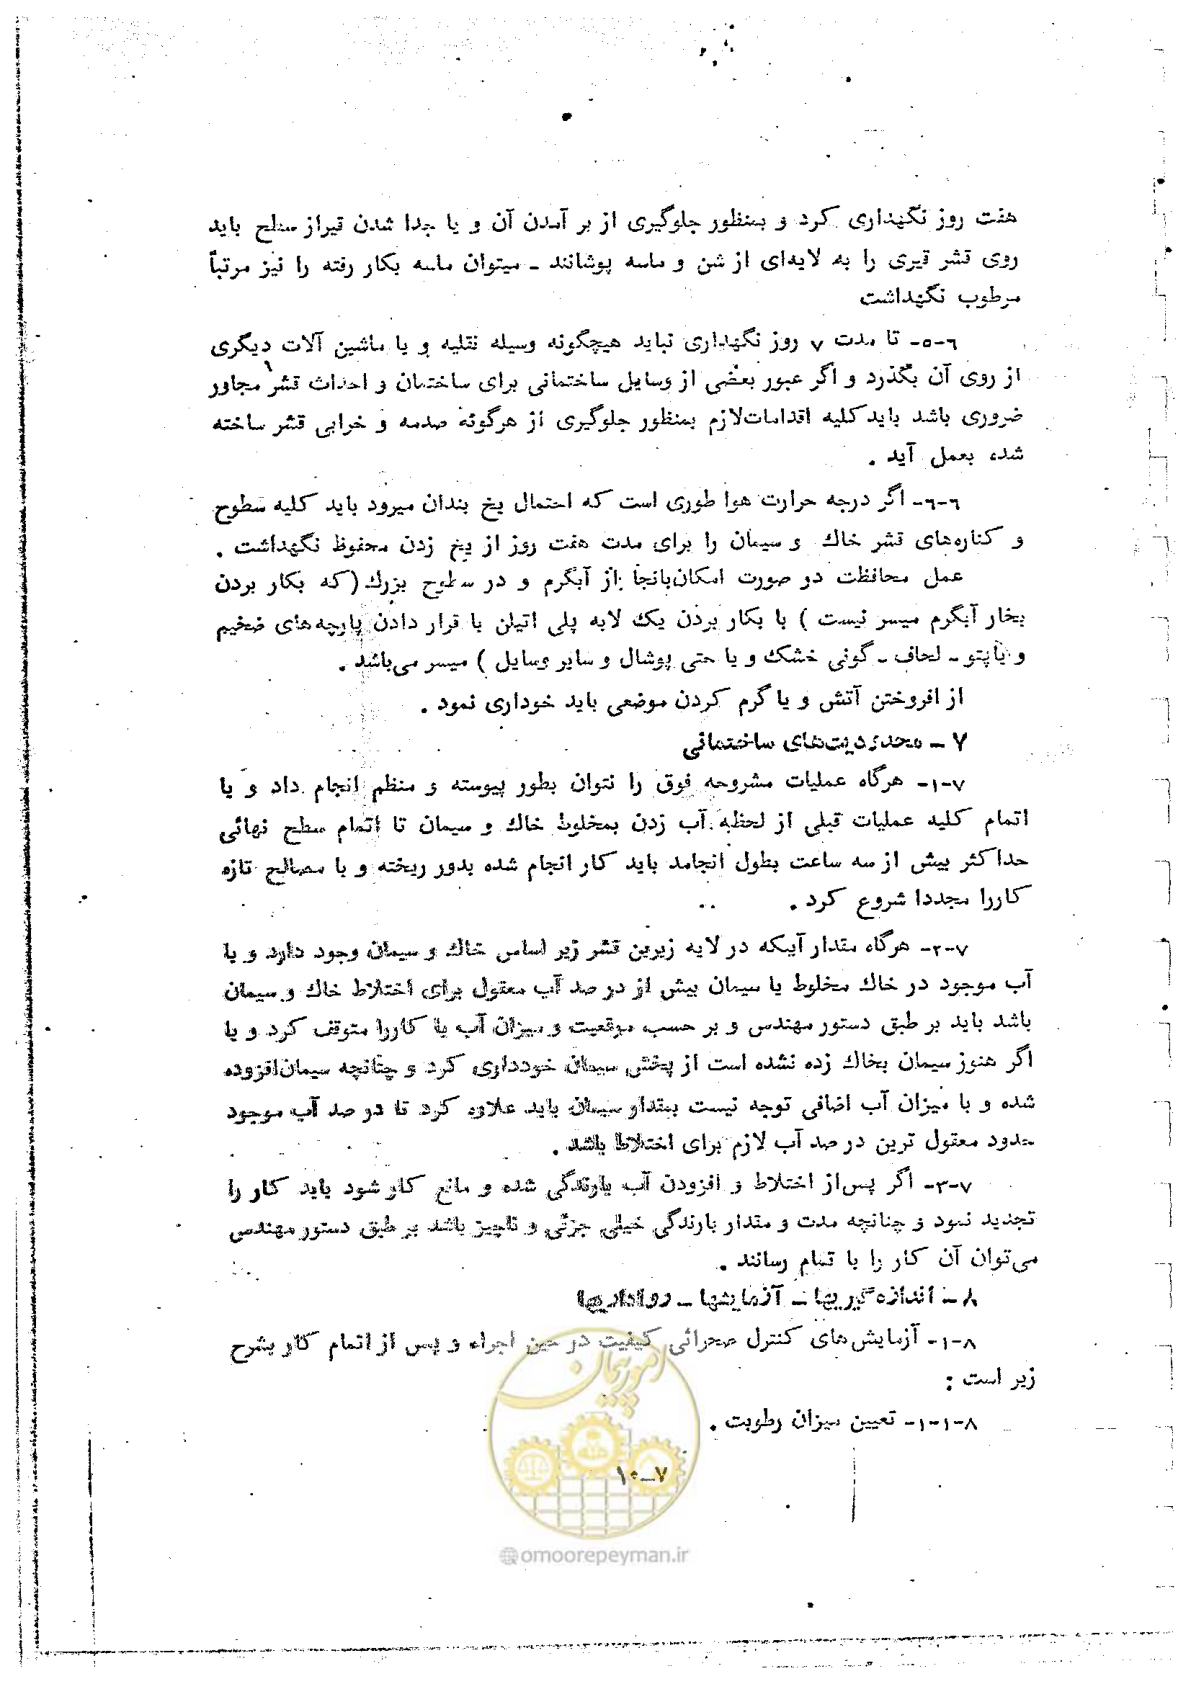 هفت روز نگهداری کرد و بمنظور جلوگیری از بر آمدن آن و یا جدا شدن قیراز سطح باید
روی قشر قیری را به لایه‌ای از شن و ماسه پوشانند ـ میتوان ماسه بکار رفته را نیز مرتباً
مرطوب نگهداشت
۶-۵- تا مدت ۷ روز نگهداری نباید هیچگونه وسیله نقلیه و یا ماشین آلات دیگری
از روی آن بگذرد و اگر عبور بعضی از وسایل ساختمانی برای ساختمان و احداث قشر مجاور
ضروری باشد باید کلیه اقدامات لازم بمنظور جلوگیری از هرگونه صدمه و خرابی قشر ساخته
شده بعمل آید .
۶-۶- اگر درجه حرارت هوا طوری است که احتمال یخ بندان میرود باید کلیه سطوح
و کناره‌های قشر خاک و سیمان را برای مدت هفت روز از یخ زدن محفوظ نگهداشت .
عمل محافظت در صورت امکان بانجا از آبگرم و در سطوح بزرگ (که بکار بردن
بخار آبگرم میسر نیست ) با بکار بردن یک لایه پلی اتیلن با قرار دادن پارچه‌های ضخیم
و یا پتو ـ لحاف ـ گونی خشک و یا حتی پوشال و سایر وسایل ) میسر می‌باشد .
از افروختن آتش و یا گرم کردن موضعی باید خوداری نمود .
۷ ـ محدودیت‌های ساختمانی
۷-۱- هرگاه عملیات مشروحه فوق را نتوان بطور پیوسته و منظم انجام داد و یا
اتمام کلیه عملیات قبلی از لحظه آب زدن بمخلوط خاک و سیمان تا اتمام سطح نهائی
حداکثر بیش از سه ساعت بطول انجامد باید کار انجام شده بدور ریخته و با مصالح تازه
کاررا مجددا شروع کرد .
۷-۲- هرگاه مقدار آبیکه در لایه زیرین قشر زیر اساس خاک و سیمان وجود دارد و یا
آب موجود در خاک مخلوط با سیمان بیش از در صد آب معقول برای اختلاط خاک و سیمان
باشد باید بر طبق دستور مهندس و بر حسب موقعیت و میزان آب یا کاررا متوقف کرد و یا
اگر هنوز سیمان بخاک زده نشده است از پخش سیمان خودداری کرد و چنانچه سیمان افزوده
شده و با میزان آب اضافی توجه نیست بمقدار سیمان باید علاوه کرد تا در صد آب موجود
حدود معقول ترین در صد آب لازم برای اختلاط باشد .
۷-۳- اگر پس از اختلاط و افزودن آب بارندگی شده و مانع کار شود باید کار را
تجدید نمود و چنانچه مدت و مقدار بارندگی خیلی جزئی و ناچیز باشد بر طبق دستور مهندس
می‌توان آن کار را با تمام رسانند .
۸ ـ اندازه‌گیریها ـ آزمایشها ـ رواداریها
۸-۱- آزمایش‌های کنترل صحرائی کیفیت در حین اجراء و پس از اتمام کار بشرح
زیر است :
۸-۱-۱- تعیین میزان رطوبت .
امور پیمان
۷-۱۰
@omoorepeyman.ir